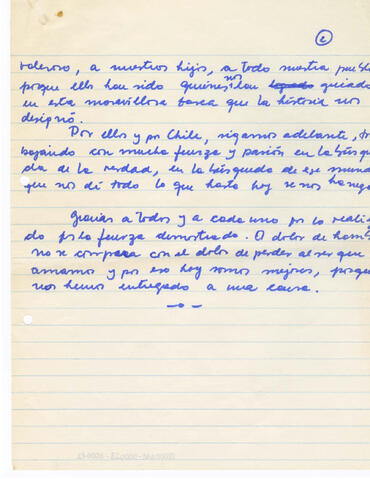 6
valeroso, a nuestros hijos, a todo nuestro pueblo
porque ellos han sido quienes nos han guiado
en esta maravillosa tarea que la historia nos
designó.
Por ellos y por Chile, sigamos adelante, tra
bajando con mucha fuerza y pasión en la búsque
da de la verdad, en la búsqueda de ese mundo
que nos dé todo lo que hasta hoy se nos ha negado
Gracias a todos y a cada uno por lo realiza
do por la fuerza demostrada. El dolor de hambre
no se compara con el dolor de perder al ser que
amamos y por eso hoy somos mejores, porque
nos hemos entregado a una causa.